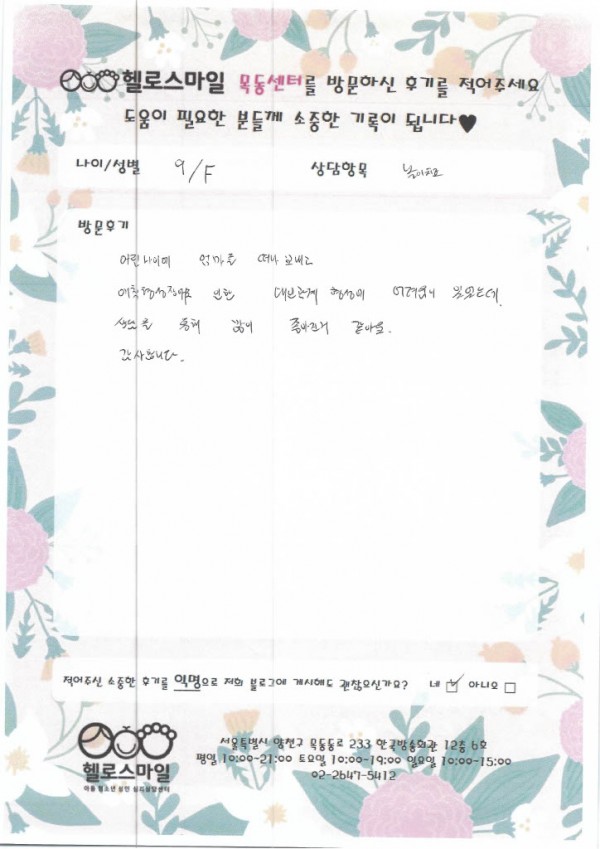 헬로스마일 목동센터를 방문하신 후기를 적어주세요
도움이 필요한 분들께 소중한 기록이 됩니다♥
나이/성별 9/F 상담항목 놀이치료
방문후기
어린나이에 엄마를 떠나보내고
애착형성장애로 인한 대인관계 형성에 어려움이 있었는데
를 통해 많이 좋아진거 같아요.
감사합니다.
적어주신 소중한 후기를 익명으로 저희 블로그에 게시해도 괜찮으신가요? 네 ☑ 아니오 □
헬로스마일
아동 청소년 성인 심리상담센터
서울특별시 양천구 목동동로 233 한국방송회관 12층 6호
평일 10:00-21:00 토요일 10:00-19:00 일요일 10:00-15:00
02-2647-5412